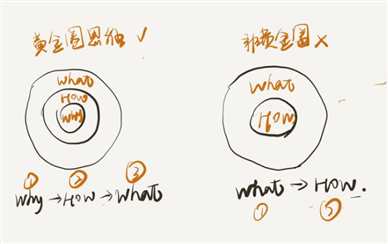 黄金圈思维 ✓
非黄金圈 ×
what
How
why
what
How
① ② ③
why → How → what
what → How.
① ②